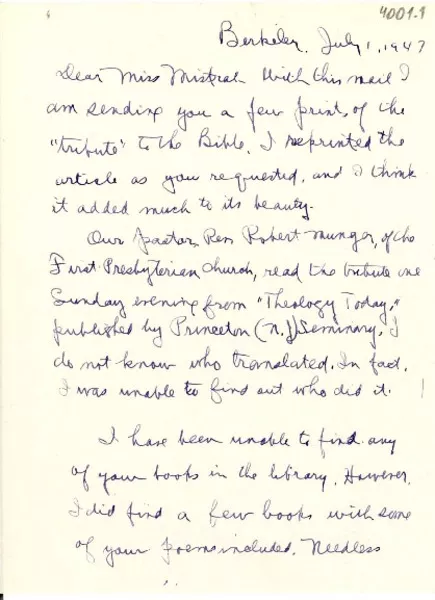 4001.1
Berkeley, July 1, 1947
Dear Miss Mistral With this mail I
am sending you a few prints of the
"tribute" to the Bible. I reprinted the
article as you requested, and I think
it added much to its beauty.
Our pastor, Rev Robert Munger, of the
First Presbyterian Church, read the tribute one
Sunday evening from "Theology Today,"
published by Princeton (N.J) Seminary. I
do not know who translated. In fact,
I was unable to find out who did it.
I have been unable to find any
of your books in the library. However,
I did find a few books with some
of your poems included. Needless